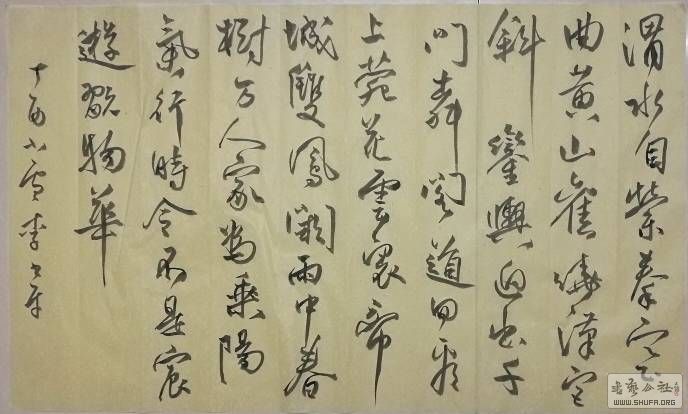 渭水自縈秦塞
曲黄山舊繞漢宮
斜鑾輿迥出千
門柳閣道回看
上苑花雲裏帝
城雙鳳闕雨中春
樹万人家為乘陽
氣行時令不是宸
遊翫物華
丁酉小雪李
书艺公社
WWW.SHUFA.ORG